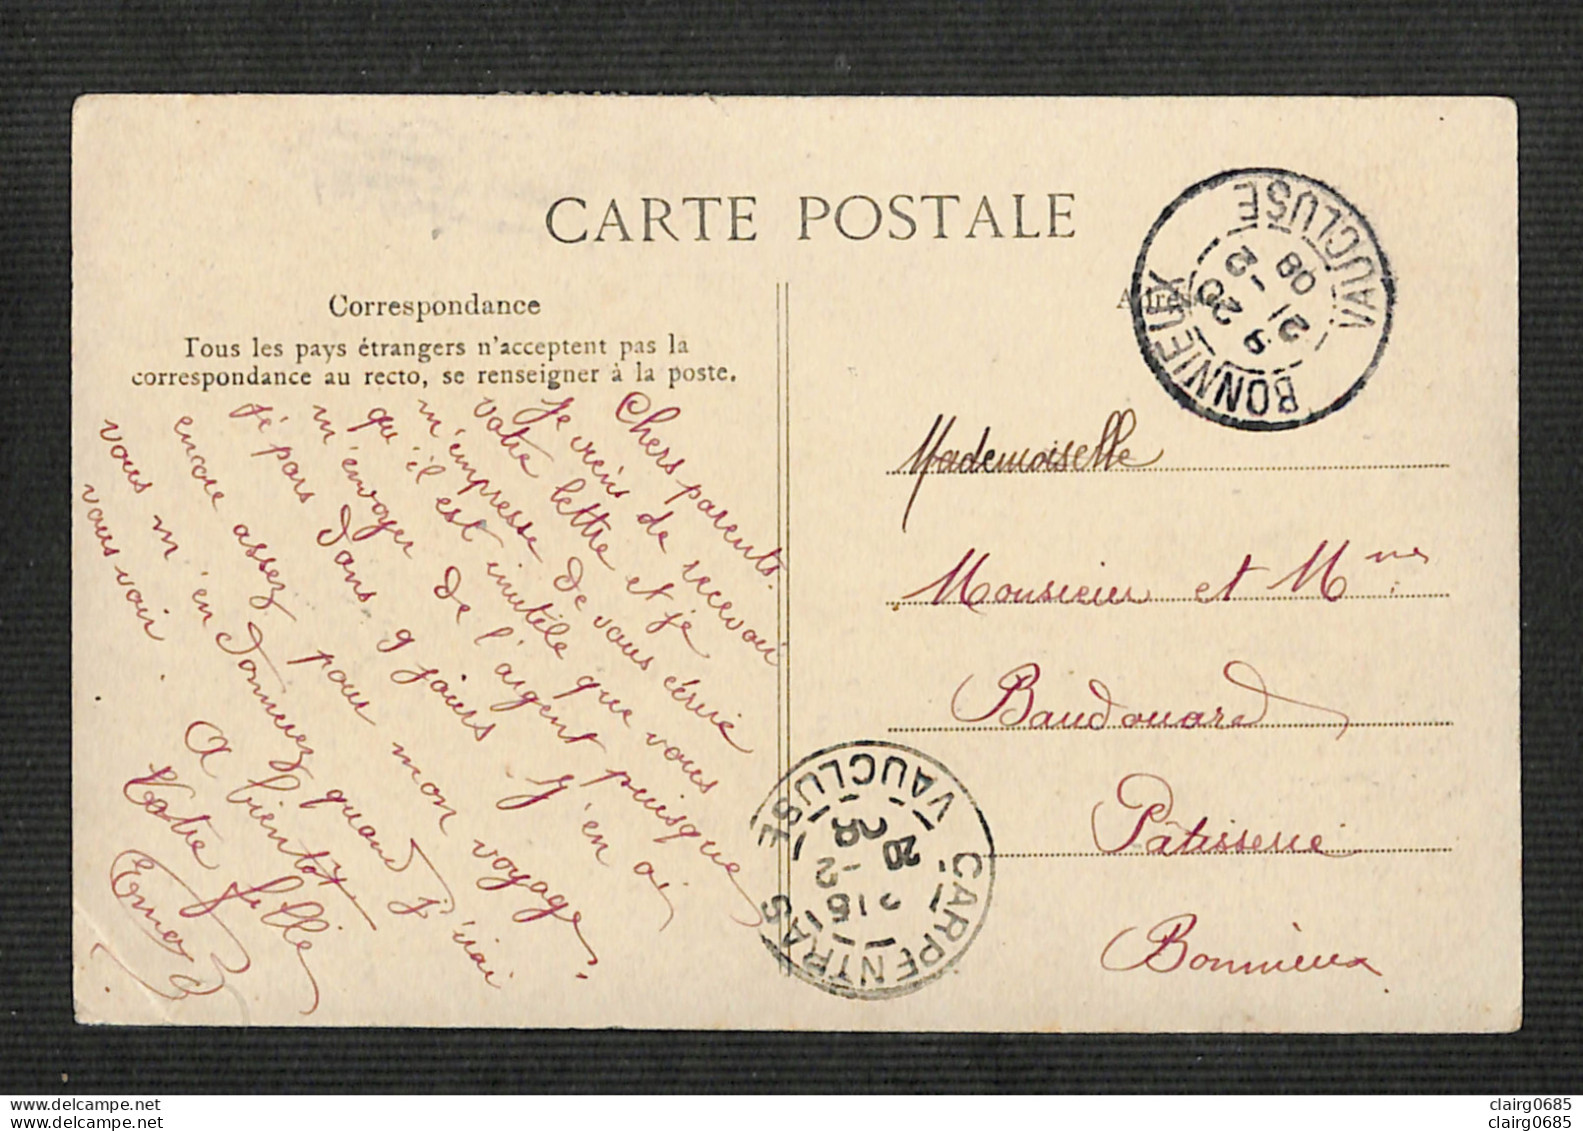 CARTE POSTALE
Correspondance
Tous les pays étrangers n'acceptent pas la
correspondance au recto, se renseigner à la poste.
Chers parents.
Je viens de recevoir
votre lettre et je
m'empresse de vous écrire
qu'il est inutile que vous
m'envoyer de l'argent puisque
je pars dans 9 jours J'en ai
encore assez pour mon voyage.
vous m'en donnerez quand j'irai
vous voir. A bientot
Votre fille
Erna
BONNIEUX
VAUCLUSE
9 20
21 -2
08
Mademoiselle
Monsieur et Mme
Baudouard
Pâtisserie
Bonnieux
CARPENTRAS
VAUCLUSE
20 -2
clairg0685
clairg0685
www.delcampe.net
www.delcampe.net
clairg0685
clairg0685